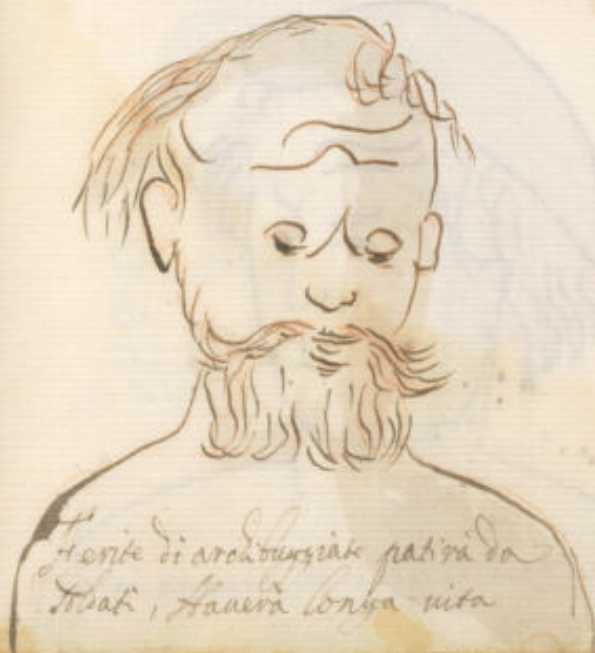 Ferite di archibuggiate patirà da
soldati, Haverà longa vita